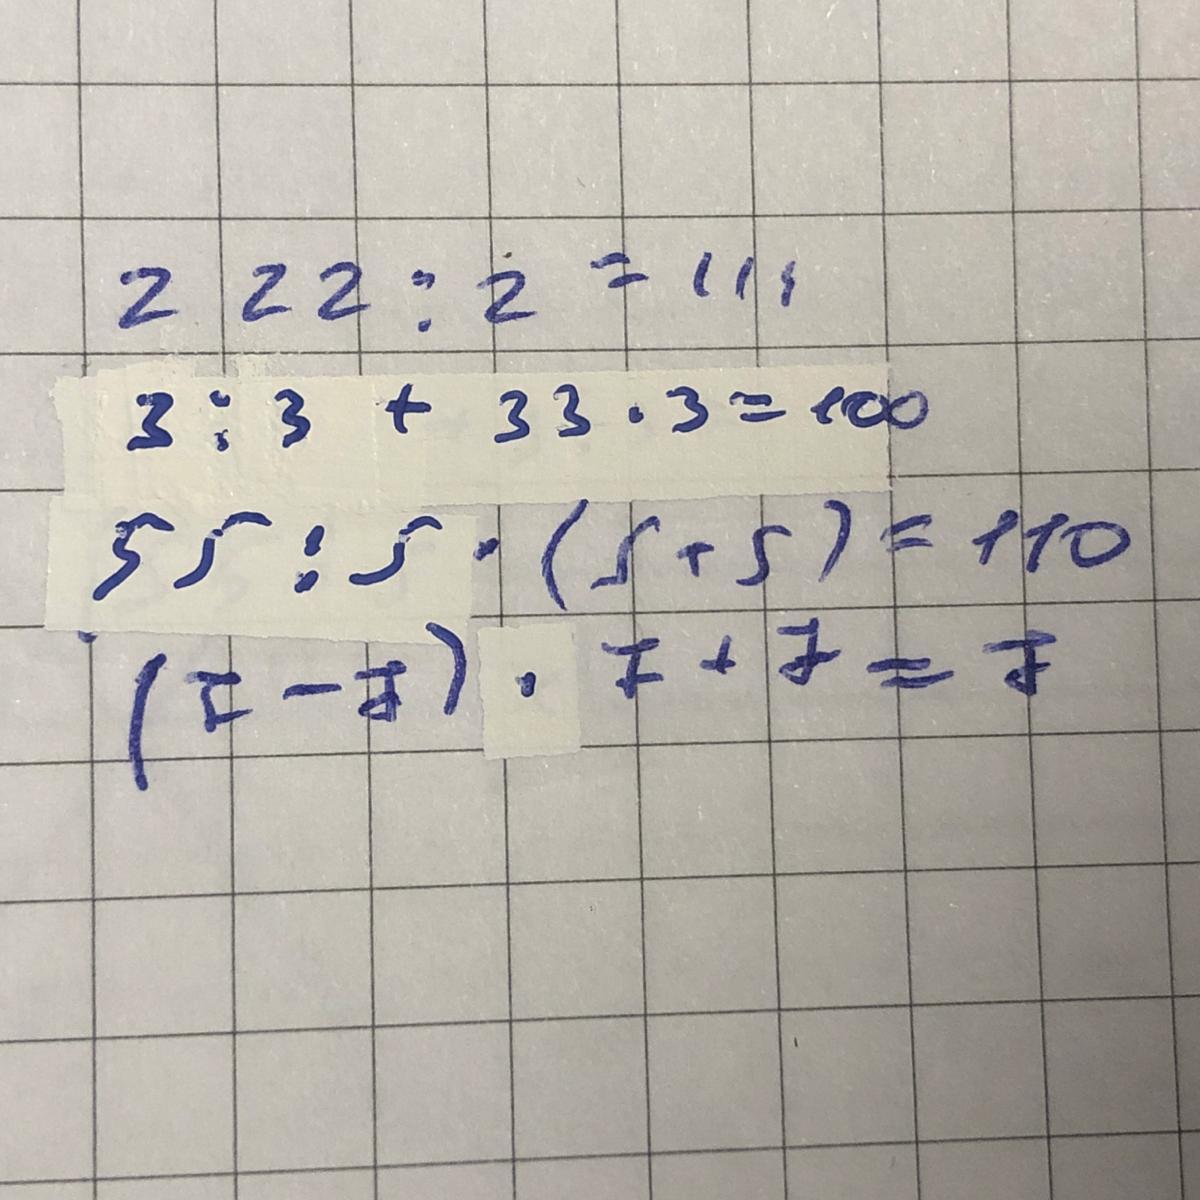 222:2=111
3:3+33·3=100
55:5·(5+5)=110
(7-7)·7+7=7